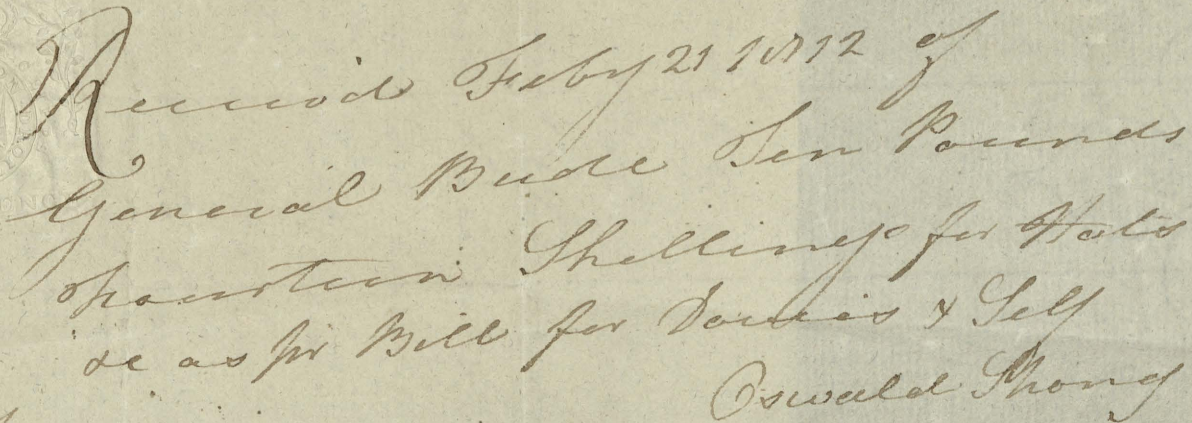 Received Feby 21 1812 of
General Bude Ten Pounds
fourteen Shillings for Hats
&c as pr Bill for Davies & Self
Oswald Strong